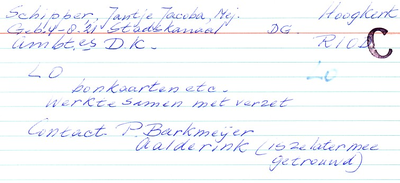 Schipper, Jantje Jacoba, Mej. Hoogkerk
Geb. 4-8.21 Stadskanaal DG.
Ambt.es D.K. R10 C
LO
bonkaarten etc.
werkte samen met verzet
Contact P. Barkmeijer
Aalderink (is ze later mee
getrouwd)